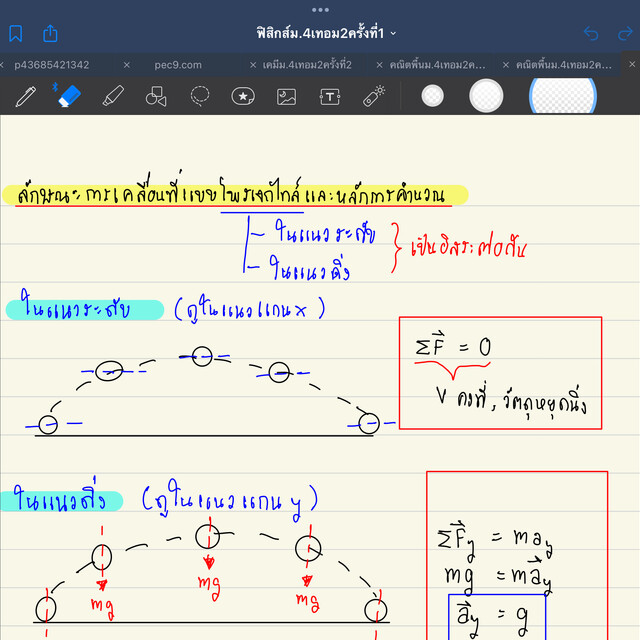 ฟิสิกส์ม.4เทอม2ครั้งที่1
p43685421342
pec9.com
เคมีม.4เทอม2ครั้งที่2
คณิตพื้นม.4เทอม2ค...
คณิตพื้นม.4เทอม2ค...
ลักษณะการเคลื่อนที่แบบโพรเจกไทล์และหลักการคำนวณ
- ในแนวระดับ
- ในแนวดิ่ง
เป็นอิสระต่อกัน
ในแนวระดับ (ดูในแนวแกน x)
ΣF⃗ = 0
v คงที่, วัตถุหยุดนิ่ง
ในแนวดิ่ง (ดูในแนวแกน y)
mg
mg
mg
ΣF⃗y = may
mg = ma⃗y
a⃗y = g